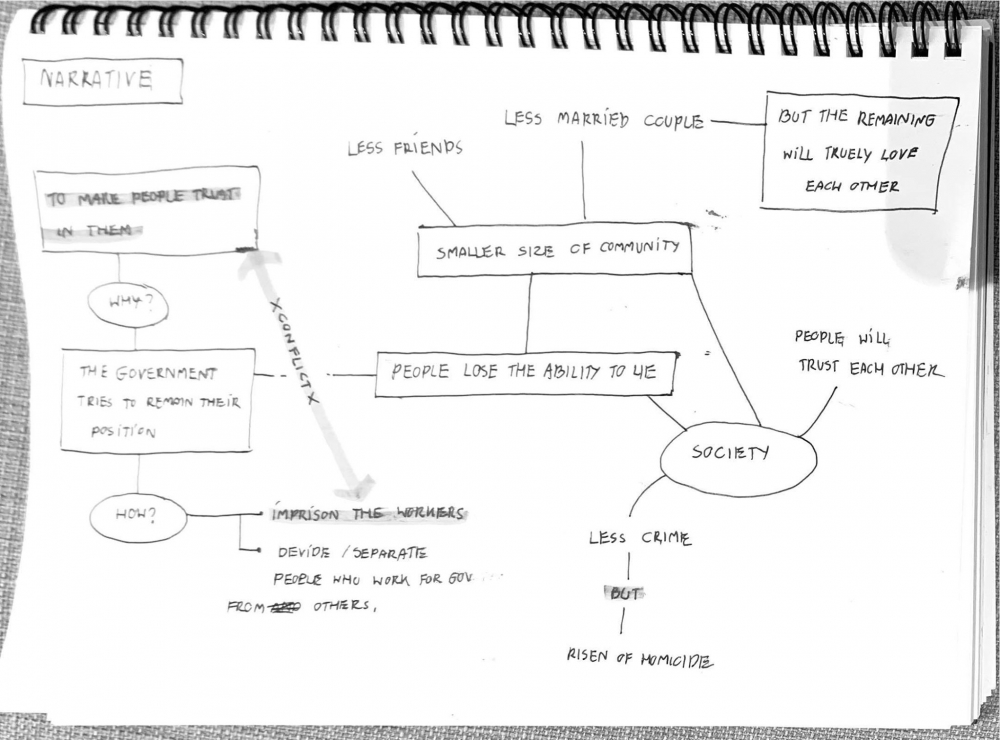 NARRATIVE
LESS MARRIED COUPLE
BUT THE REMAINING
WILL TRUELY LOVE
EACH OTHER
LESS FRIENDS
TO MAKE PEOPLE TRUST
IN THEM
SMALLER SIZE OF COMMUNITY
WHY?
X CONFLICT X
PEOPLE WILL
TRUST EACH OTHER
THE GOVERNMENT
TRIES TO REMAIN THEIR
POSITION
PEOPLE LOSE THE ABILITY TO LIE
SOCIETY
HOW?
IMPRISON THE WORKERS
DEVIDE / SEPARATE
PEOPLE WHO WORK FOR GOV
FROM OTHERS.
LESS CRIME
BUT
RISEN OF HOMICIDE